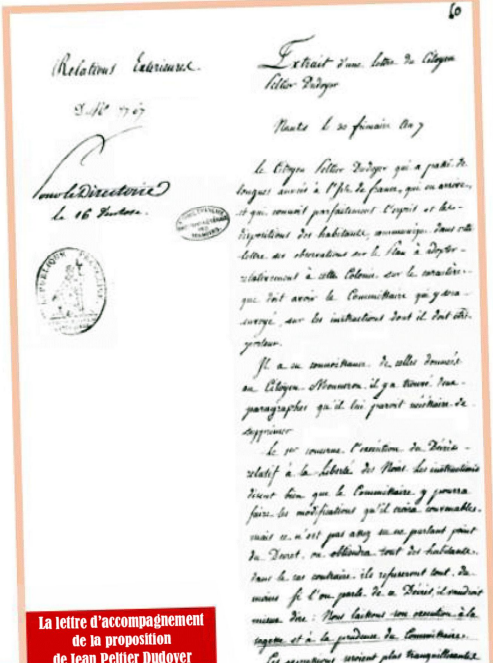 60
Relations Exterieures
D. No
Pour le Directoire
le 16
RÉPUBLIQUE FRANÇAISE
Extrait d'une lettre du Citoyen
Peltier Dudoyer
Nantes le 20 frimaire An 7
le Citoyen Peltier Dudoyer qui a passé de
longues années à l'Isle de france, qui en arrive,
et qui connoit parfaitement l'esprit et les
dispositions des habitants, communique dans cette
lettre ses observations sur le Plan à adopter
relativement à cette Colonie sur le caractère
que doit avoir le Committaire qui y sera
envoyé, sur les instructions dont il doit être
porteur.
Il a eu connoittance de celles données
au Citoyen Monneron il y a trouvé deux
paragraphes qu'il lui paroit nécéttaire de
supprimer
Le 1er concerne l'exécution du Décret
relatif à la liberté des Noirs. Les instructions
disent bien que le Committaire y pourra
faire les modifications qu'il croira convenables.
mais ce n'est pas assez en ne parlant point
du Decret, on obtiendra tout des habitants.
dans le cas contraire, ils refuseront tout. du
moins si l'on parle de ce Décret, il vaudroit
mieux dire: Nous laittons son exécution à la
sagette et à la prudence du Committaire.
Ces expressions seroient plus tranquillisantes
La lettre d'accompagnement
de la proposition
de Jean Peltier Dudoyer